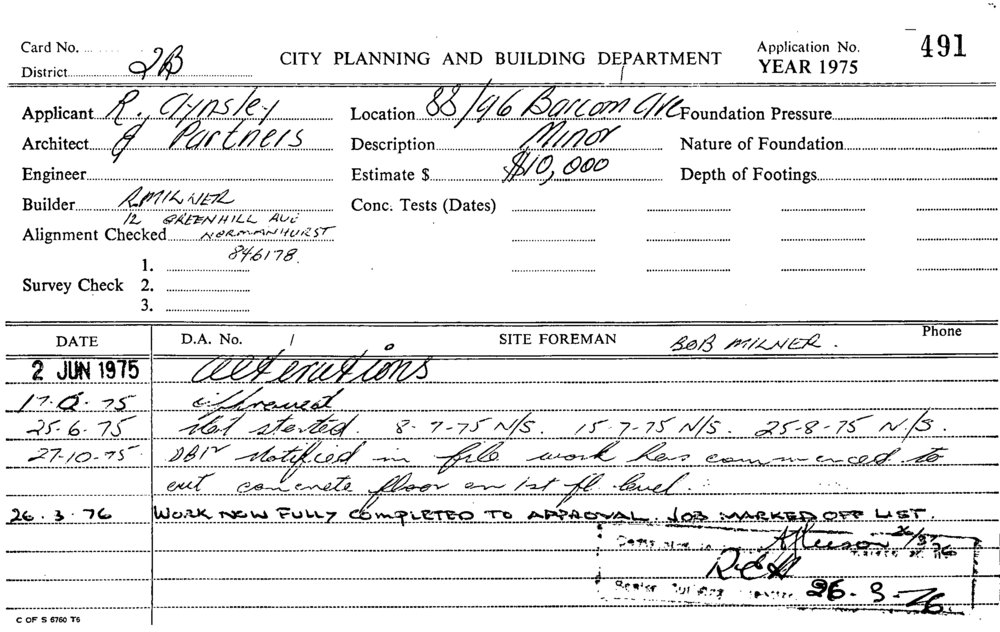 Card No. 491
District 2B CITY PLANNING AND BUILDING DEPARTMENT Application No. YEAR 1975
Applicant R. Aynsley Location 88/96 Barcom Ave Foundation Pressure
Architect & Partners Description Minor Nature of Foundation
Engineer Estimate $ $10,000 Depth of Footings
Builder R. MILNER Conc. Tests (Dates)
12 GREENHILL AVE
Alignment Checked NORMANHURST
846178.
1.
Survey Check 2.
3.
DATE D.A. No. / SITE FOREMAN BOB MILNER. Phone
2 JUN 1975 Alterations
75 approved
25.6.75 Not started. 8-7-75 N/S. 15-7-75 N/S. 25-8-75 N/S.
27-10-75 notified in file work has commenced to
cut concrete floor on 1st fl level.
26.3.76 WORK NOW FULLY COMPLETED TO APPROVAL. JOB MARKED OFF LIST.
26-3-76
C OF S 6760 T6